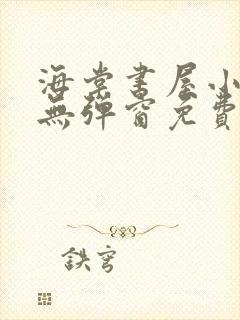 海棠書屋小
無彈窗免費
鉄穹